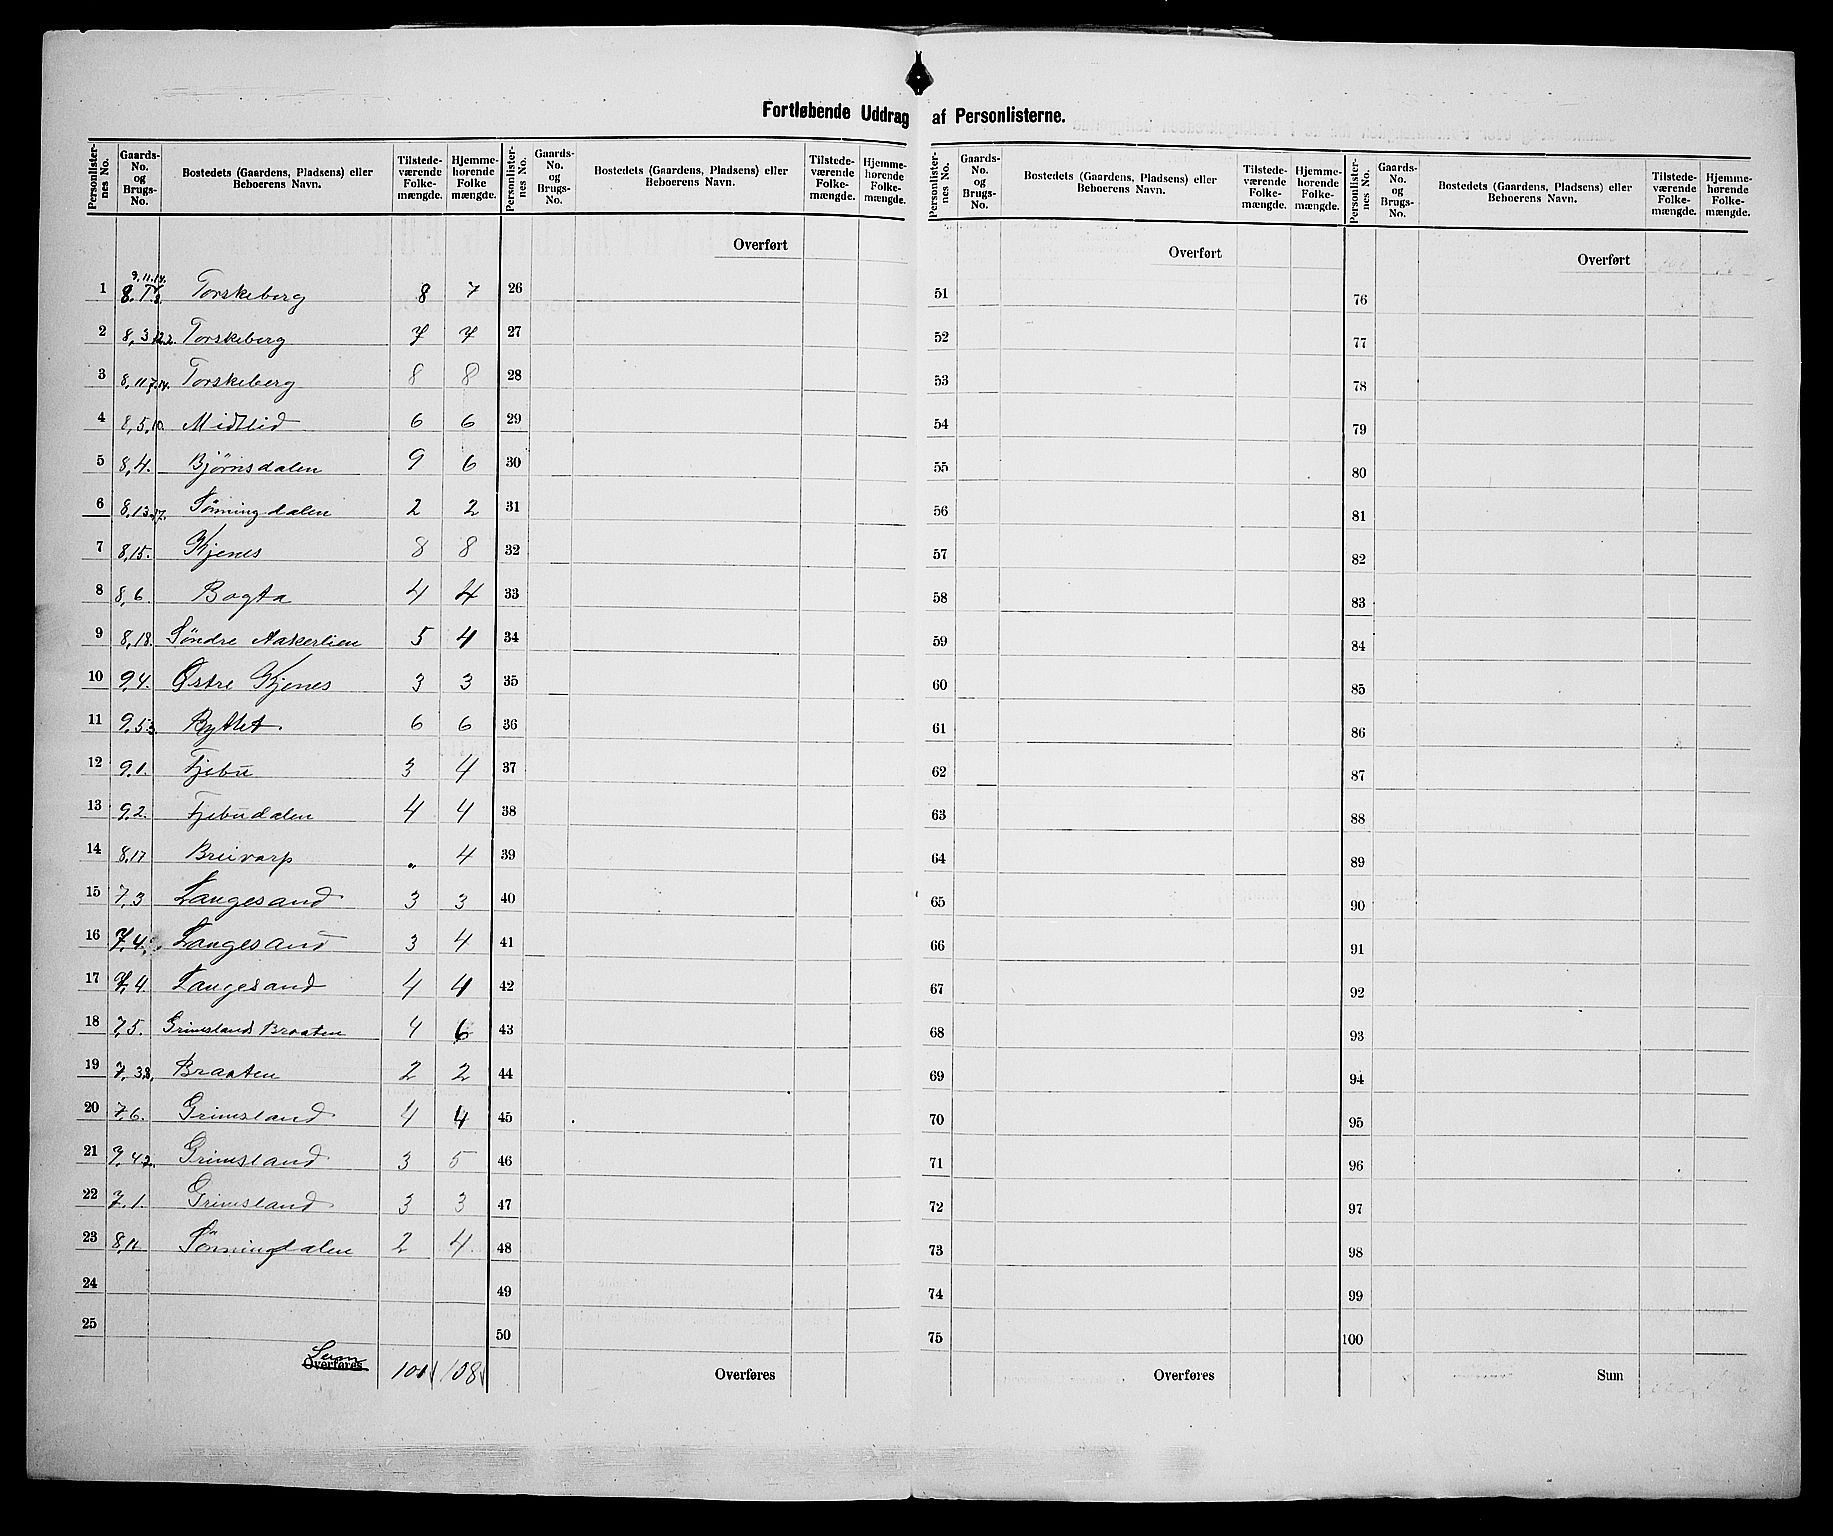 Fortløbende Uddrag af Personlisterne.
Personlisternes No. | Gaards-No. og Brugs-No. | Bostedets (Gaardens, Pladsens) eller Beboerens Navn. | Tilstedeværende Folkemængde. | Hjemmehørende Folkemængde.
Personlisternes No. | Gaards-No. og Brugs-No. | Bostedets (Gaardens, Pladsens) eller Beboerens Navn. | Tilstedeværende Folkemængde. | Hjemmehørende Folkemængde.
Personlisternes No. | Gaards-No. og Brugs-No. | Bostedets (Gaardens, Pladsens) eller Beboerens Navn. | Tilstedeværende Folkemængde. | Hjemmehørende Folkemængde.
Personlisternes No. | Gaards-No. og Brugs-No. | Bostedets (Gaardens, Pladsens) eller Beboerens Navn. | Tilstedeværende Folkemængde. | Hjemmehørende Folkemængde.
Overført Overført Overført
1 Torskeberg 8 7 26 51 76
2 8,3 Torskeberg 7 7 27 52 77
3 8,11 Torskeberg 8 8 28 53 78
4 8,5,10. Midtlid 6 6 29 54 79
5 8,4. Bjørnsdalen 9 6 30 55 80
6 8,13 Tønningdalen 2 2 31 56 81
7 8,15. Kjenes 8 8 32 57 82
8 8,6. Bogta 4 4 33 58 83
9 8,18. Søndre Aakerlien 5 4 34 59 84
10 9,4. Østre Kjenes 3 3 35 60 85
11 9,53. Ryttet. 6 6 36 61 86
12 9,1. Fjebu 3 4 37 62 87
13 9,2. Fjebudalen 4 4 38 63 88
14 8,17 Breivarp „ 4 39 64 89
15 7,3 Langesand 3 3 40 65 90
16 7,4. Langesand 3 4 41 66 91
17 7,4. Langesand 4 4 42 67 92
18 7,5. Grimsland Braaten 4 6 43 68 93
19 7,38. Braaten 2 2 44 69 94
20 7,6. Grimsland 4 4 45 70 95
21 7,42. Grimsland 3 5 46 71 96
22 7,1. Grimsland 3 3 47 72 97
23 Tønningdalen 2 4. 48 73 98
24 49 74 99
25 50 75 100
Sum
Overføres 101 108 Overføres Overføres Sum